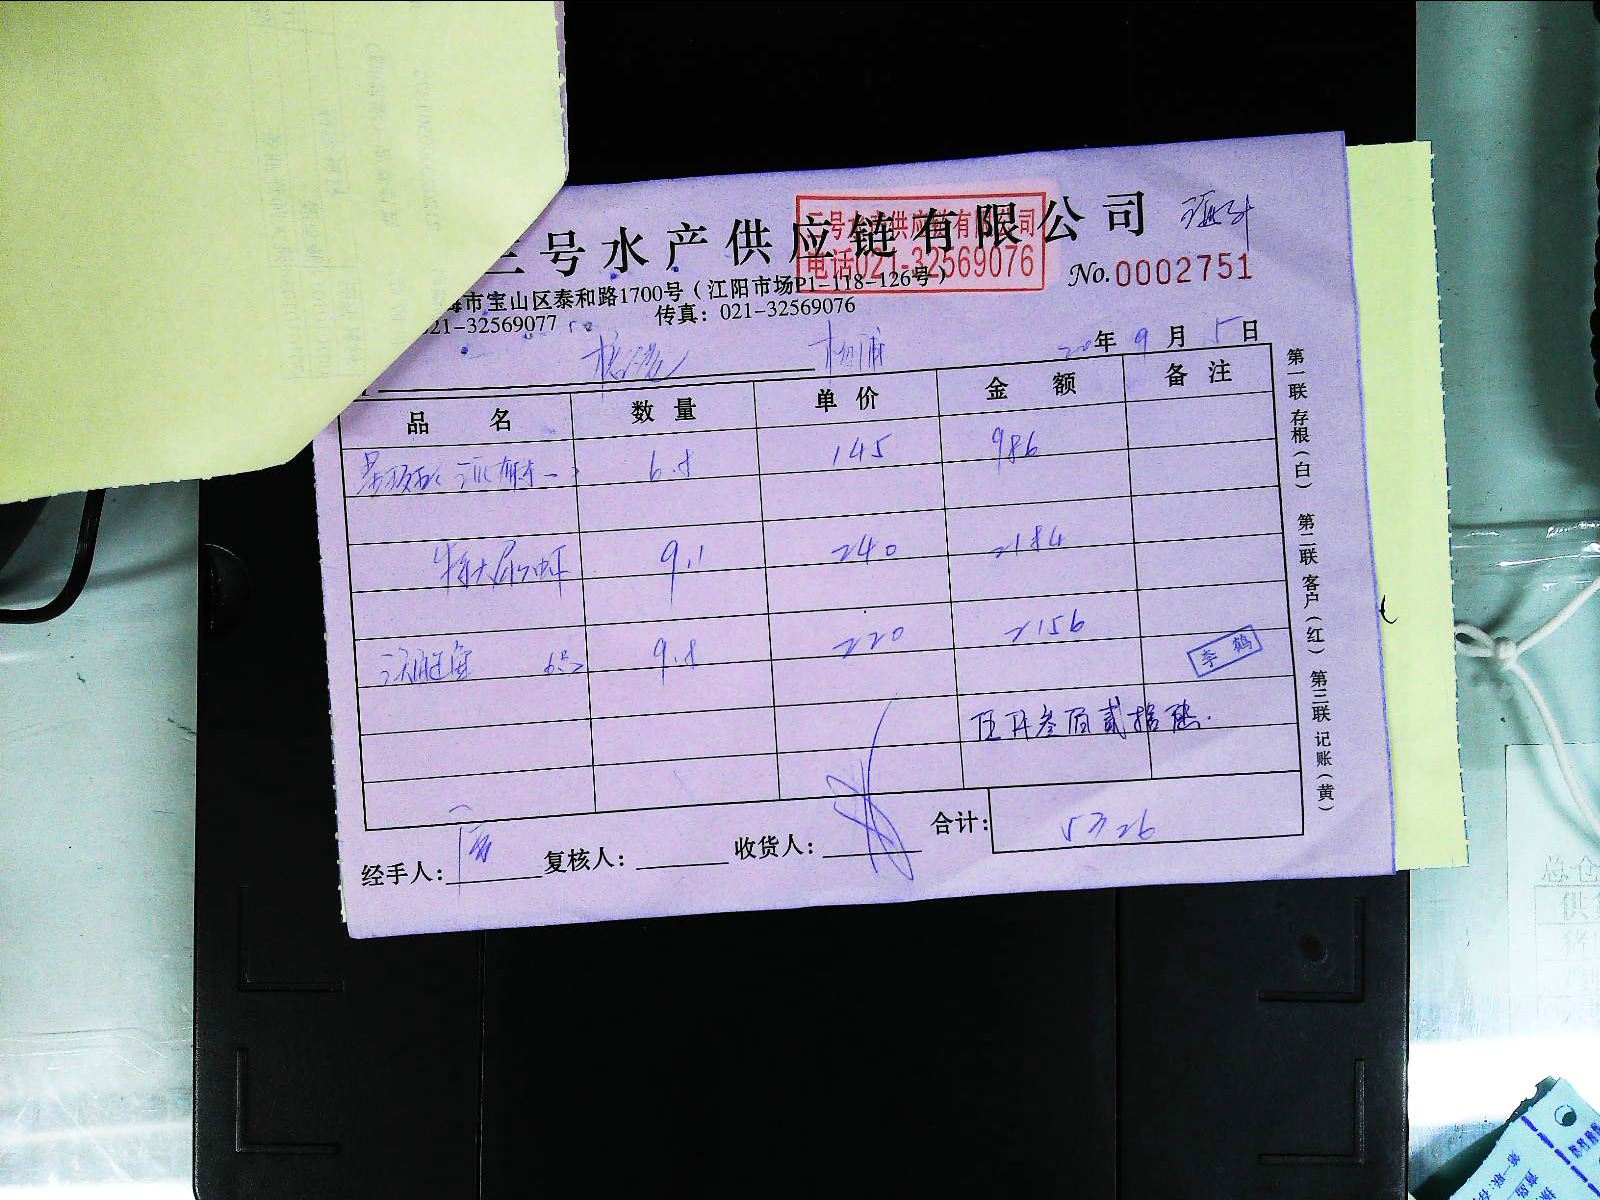 三号水产供应链有限公司
三号水产供应链有限公司
电话021-32569076
No.0002751
海市宝山区泰和路1700号（江阳市场P1-118-126号）
021-32569077 传真：021-32569076
杨浦
20年9月15日
品名 数量 单价 金额 备注
6.8 145 986
特大 9.1 240 2184
9.8 220 2156
李鹤
伍仟叁佰贰拾陆
合计： 5326
经手人： 复核人： 收货人：
第一联 存根（白） 第二联 客户（红） 第三联 记账（黄）